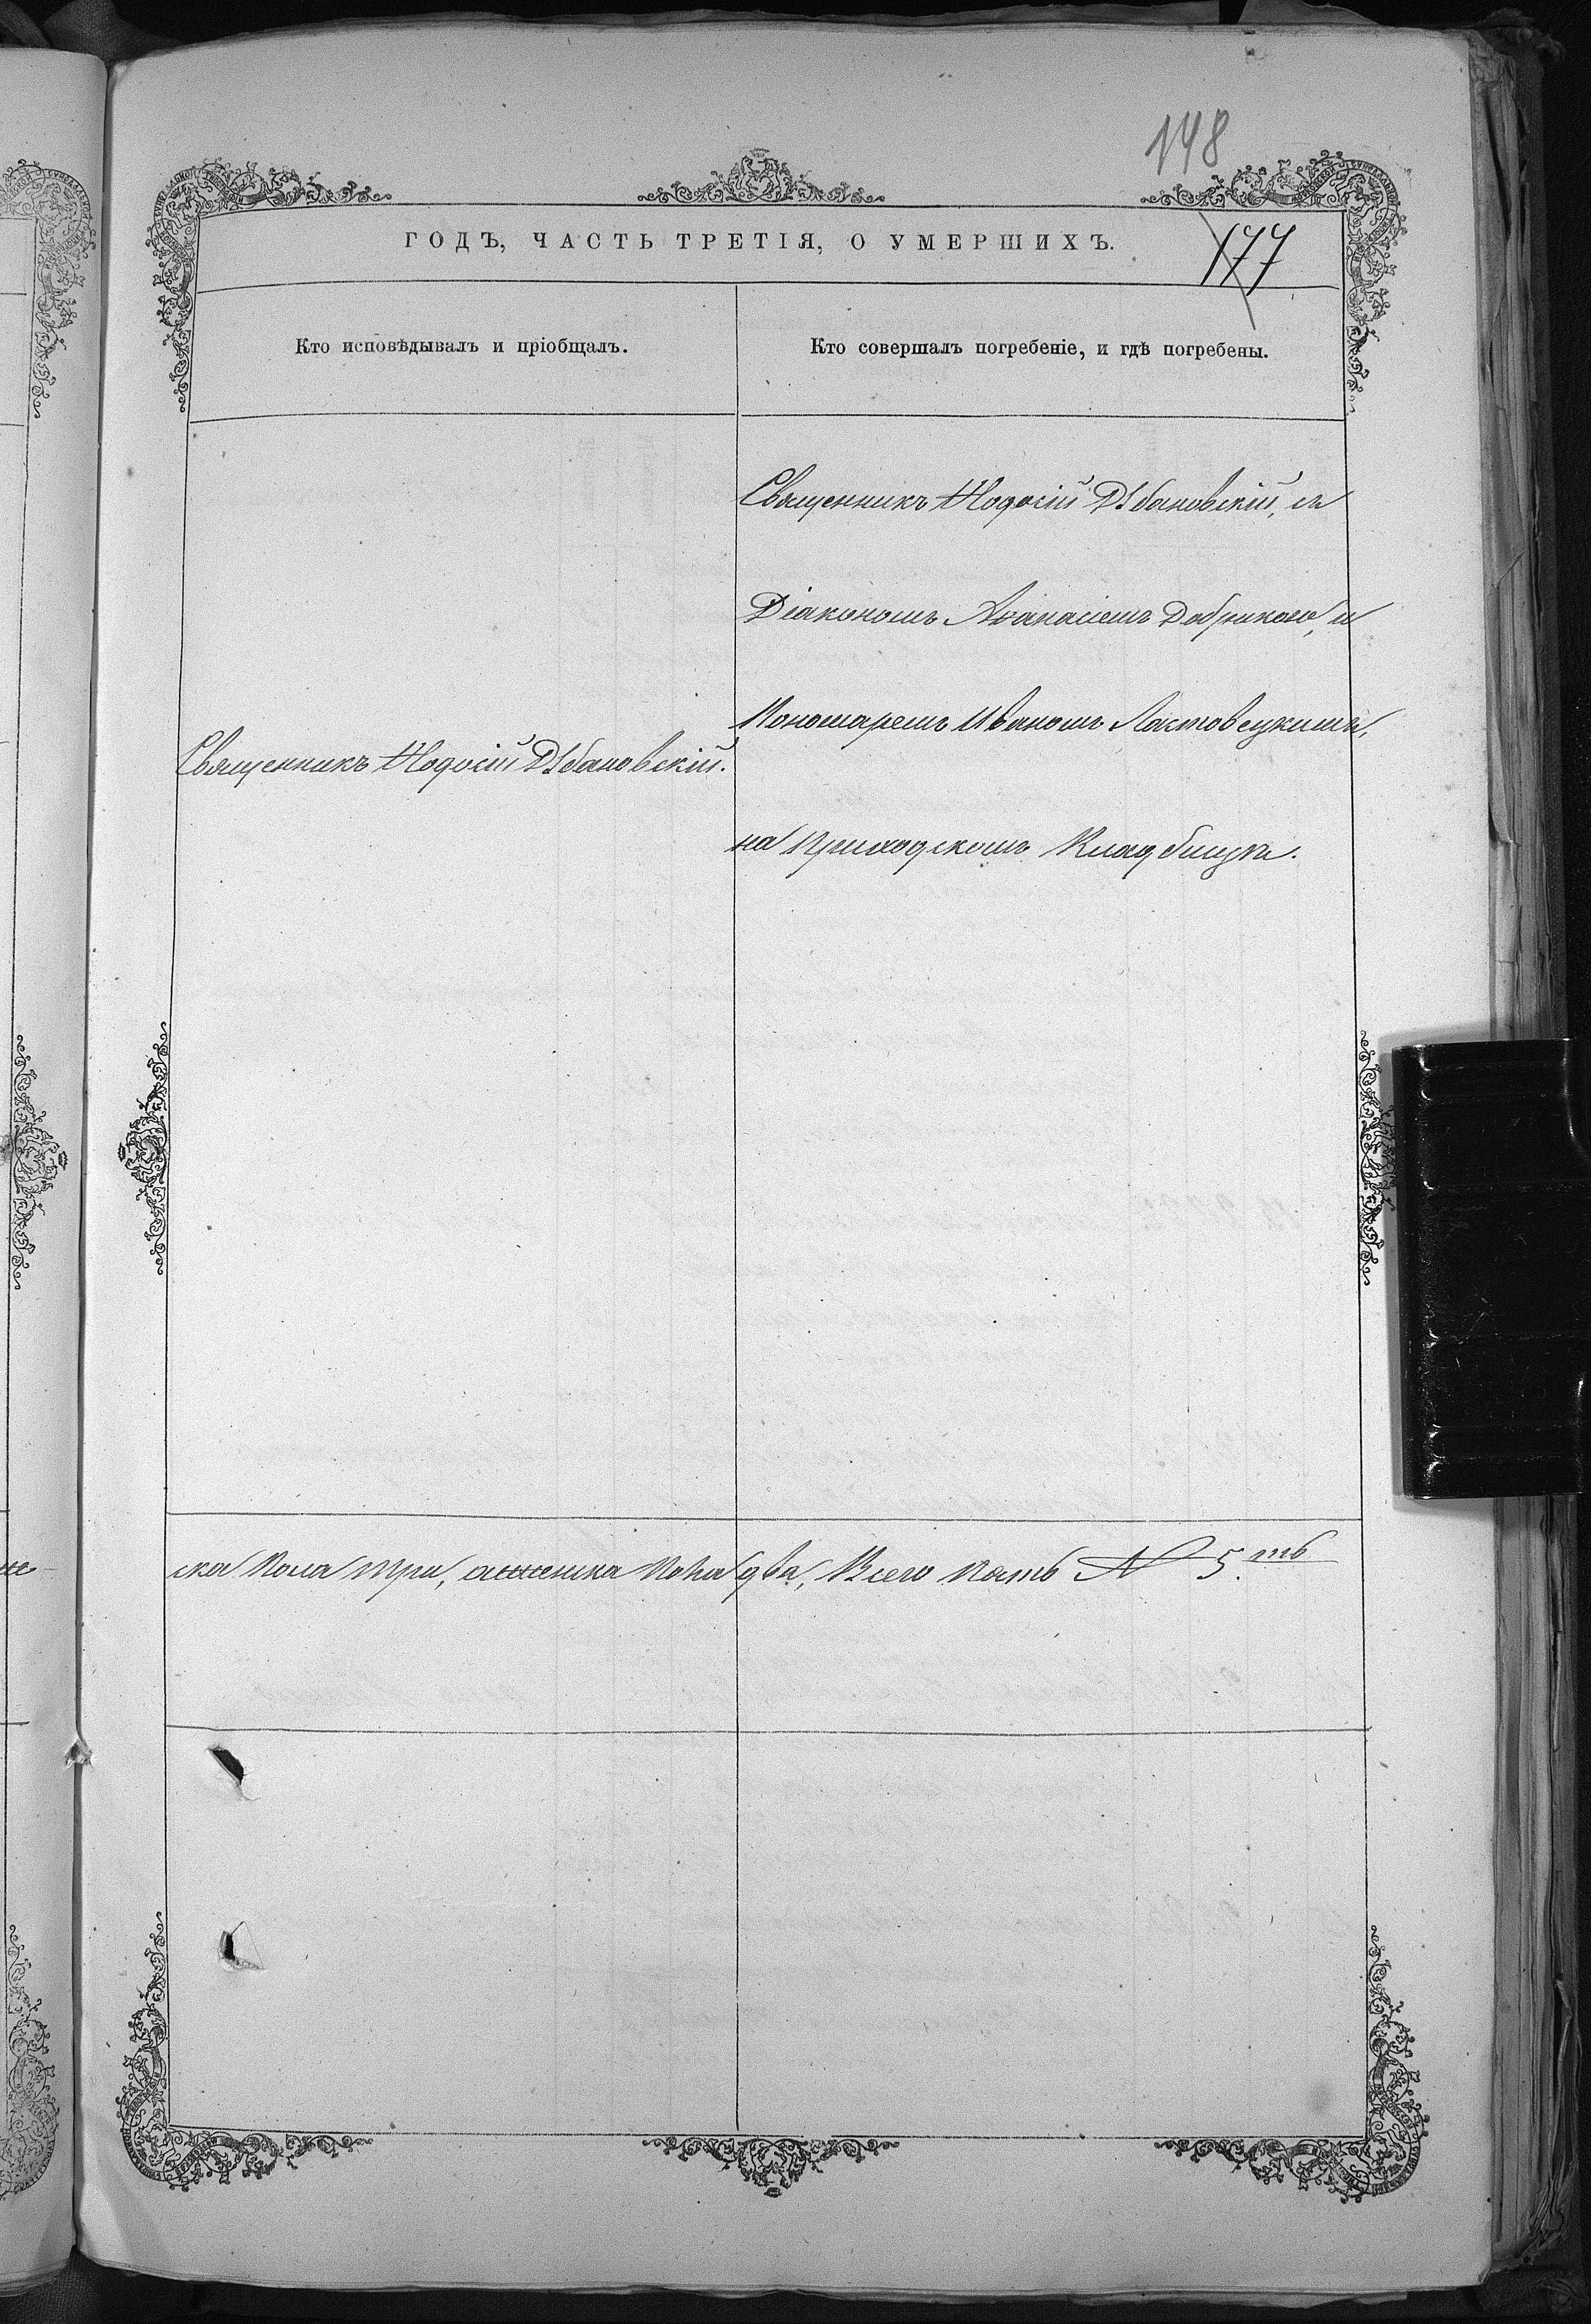 148
ГОДЪ, ЧАСТЬ ТРЕТІЯ, О УМЕРШИХЪ.
177
Кто исповѣдывалъ и пріобщалъ.
Кто совершалъ погребеніе, и гдѣ погребены.
Священникъ Ѳеодосій Дзбановскій, съ
Діакономъ Аѳанасіемъ и
Пономаремъ Иваномъ Ластовецкимъ,
на Приходскомъ Кладбищѣ.
Священникъ Ѳеодосій Дзбановскій.
ска Пола три, а женска Пола два, Всего Пять № 5.ть